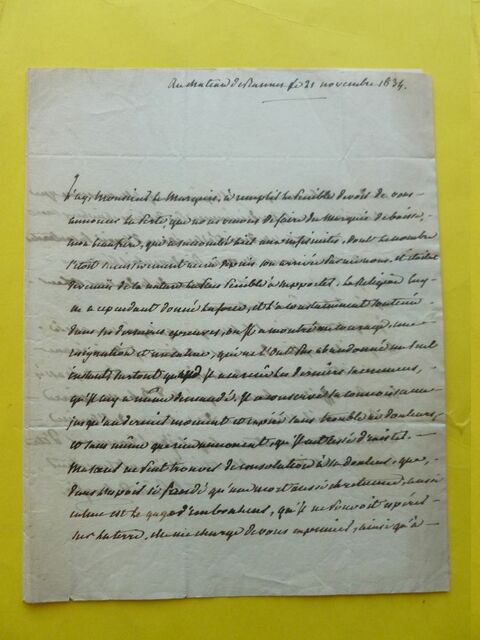 Au château de Bannes le 21 novembre 1834.
J'ay, Monsieur le Marquis, à remplir le pénible devoir de vous
annoncer la perte, que nous venons de faire du Marquis de
mon beaufrère, qui a succombé aux infirmités, dont le nombre
s'étoit accru depuis son arrivée parmi nous. et étoit
devenu de la nature la plus pénible à supporter. La Religion
en a cependant donné la force, et l'a constamment soutenu
dans ses dernières épreuves, où il a montré un courage, une
résignation et un calme, qui ne l'ont pas abandonné un seul
instant, surtout quand il a reçu les derniers sacremens,
qu'il a même demandés. Il a conservé sa connoissance
jusqu'au dernier moment et expiré sans trouble ni douleurs,
et sans même que qu'il eut cessé d'exister.
Ma sœur ne peut trouver de consolation à sa douleur, que,
dans l'espoir si fondé qu'une mort aussi chrétienne, aussi
calme est le gage d'un bonheur, qu'il ne pouvoit espérer
sur la terre, elle me charge de vous exprimer, ainsi qu'à